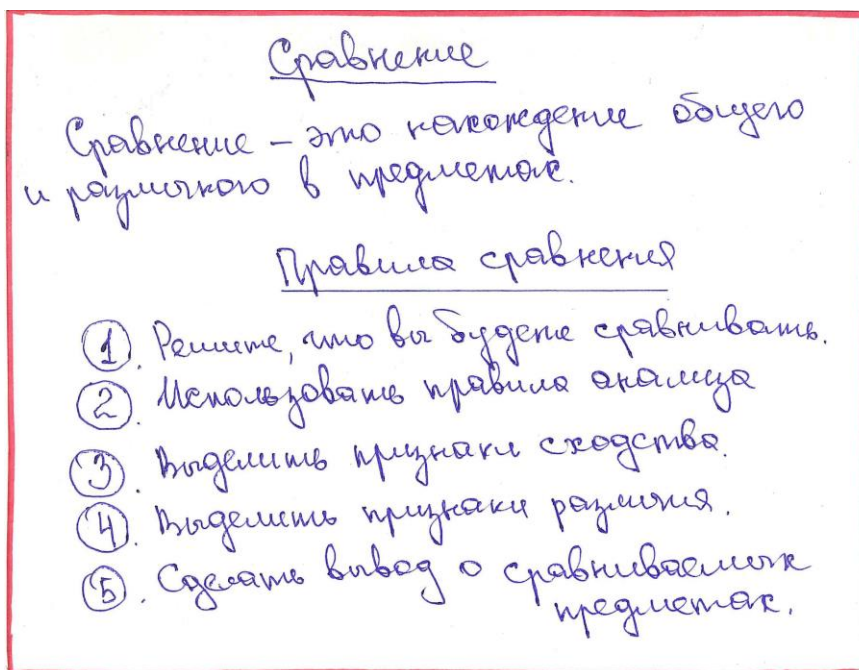 Сравнение
Сравнение – это нахождение общего
и различного в предметах.
Правила сравнения
1. Решите, что вы будете сравнивать.
2. Использовать правила анализа
3. Выделить признаки сходства.
4. Выделить признаки различия.
5. Сделать вывод о сравниваемых
предметах.